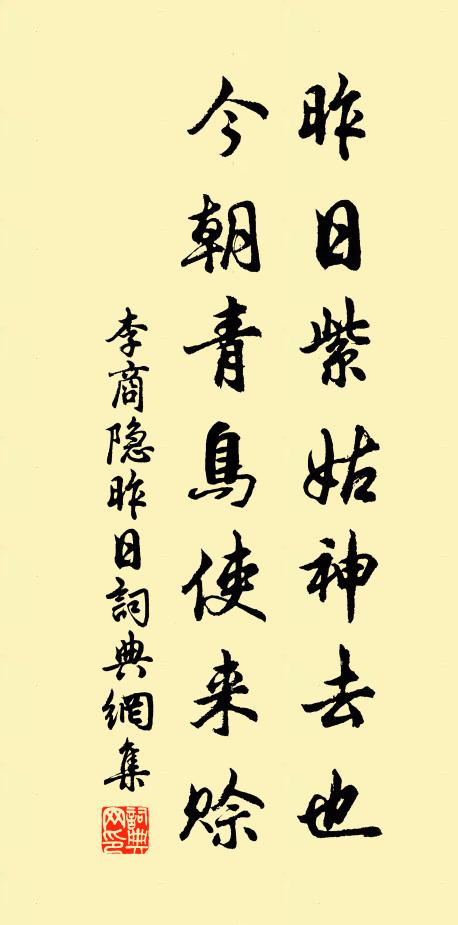 昨日紫姑神去也
今朝青鳥使来赊
李商隐昨日詞典網集
詞典网印